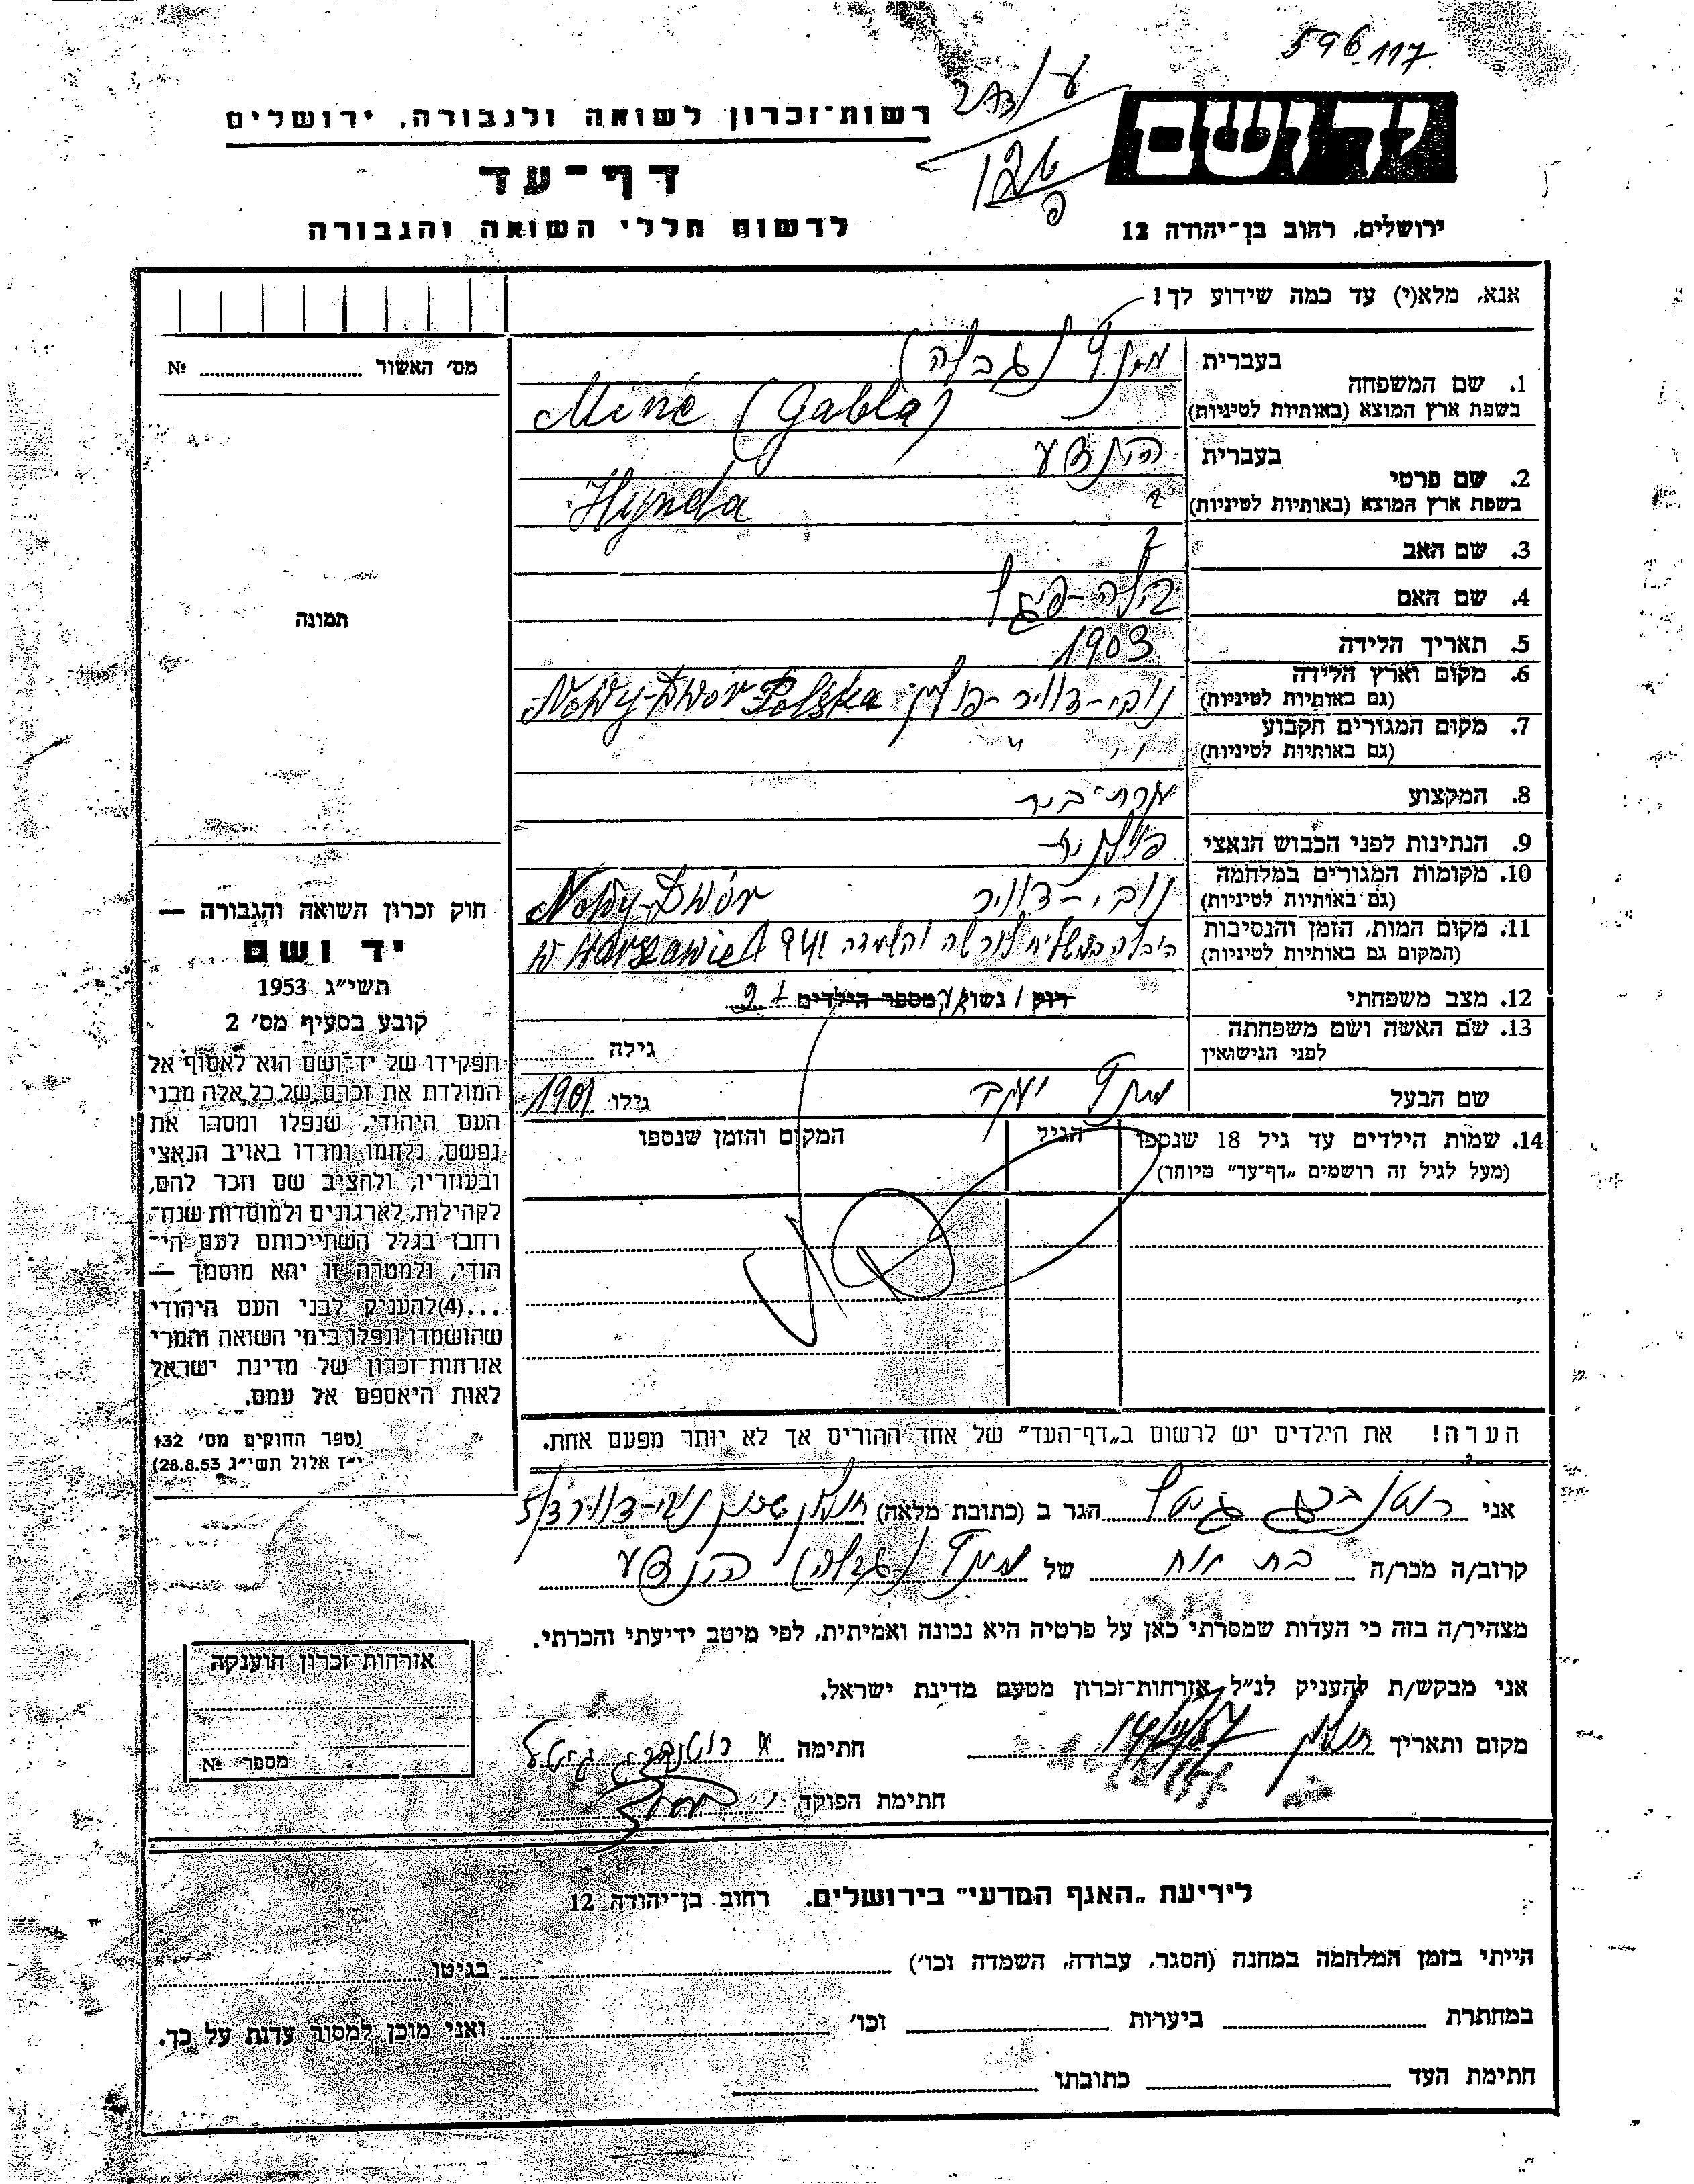 596117
רשות־זכרון לשואה ולגבורה, ירושלים
יד ושם
דף־עד
לרשום חללי השואה והגבורה
ירושלים, רחוב בן־יהודה 12
אנא, מלא(י) עד כמה שידוע לך!
מס׳ האשור № 
תמונה
1. שם המשפחה
בעברית
(גבלה)
בשפת ארץ המוצא (באותיות לטיניות)
Minc (Gabla)
2. שם פרטי
בעברית
הינדע
בשפת ארץ המוצא (באותיות לטיניות)
Hynda
3. שם האב ?
4. שם האם
5. תאריך הלידה 1903
6. מקום וארץ הלידה
(גם באותיות לטיניות)
נובי-דוויר-פולין Nowy-Dwór Polska
7. מקום המגורים הקבוע
(גם באותיות לטיניות)
״ ״
8. המקצוע
9. הנתינות לפני הכבוש הנאצי
10. מקומות המגורים במלחמה
(גם באותיות לטיניות)
נובי-דוויר Nowy-Dwór
11. מקום המות, הזמן והנסיבות
(המקום גם באותיות לטיניות)
W Warszawie
12. מצב משפחתי
רוק / נשוי / מספר הילדים
13. שם האשה ושם משפחתה
לפני הנישואין
גילה
שם הבעל
יעקב
גילו 1901
14. שמות הילדים עד גיל 18 שנספו
(מעל לגיל זה רושמים „דף־עד״ מיוחד)
הגיל
המקום והזמן שנספו
הערה! את הילדים יש לרשום ב„דף־העד״ של אחד ההורים אך לא יותר מפעם אחת.
חוק זכרון השואה והגבורה —
יד ושם
תשי״ג 1953
קובע בסעיף מס׳ 2
תפקידו של יד־ושם הוא לאסוף אל
המולדת את זכרם של כל אלה מבני
העם היהודי, שנפלו ומסרו את
נפשם, נלחמו ומרדו באויב הנאצי
ובעוזריו, ולהציב שם וזכר להם,
לקהילות, לארגונים ולמוסדות שנח־
רחבז בגלל השתייכותם לעם הי־
הודי, ולמטרה זו יהא מוסמך —
...(4) להעניק לבני העם היהודי
שהושמדו ונפלו בימי השואה והמרי
אזרחות־זכרון של מדינת ישראל
לאות היאספם אל עמם.
(ספר החוקים מס׳ 132
י״ז אלול תשי״ג 28.8.53)
אני רוטנברג גיטל הגר ב (כתובת מלאה) חולון שכון נובי-דוויר
קרוב/ה מכר/ה בת אח של (גבלה) הינדע
מצהיר/ה בזה כי העדות שמסרתי כאן על פרטיה היא נכונה ואמיתית, לפי מיטב ידיעתי והכרתי.
אני מבקש/ת להעניק לנ״ל אזרחות־זכרון מטעם מדינת ישראל.
מקום ותאריך חולון
חתימה רוטנברג גיטל
חתימת הפוקד
אזרחות־זכרון הוענקה
מספר №
לידיעת „האגף המדעי״ בירושלים, רחוב בן־יהודה 12
הייתי בזמן המלחמה במחנה (הסגר, עבודה, השמדה וכו׳) בגיטו
במחתרת ביערות וכו׳ ואני מוכן למסור עדות על כך.
חתימת העד כתובתו